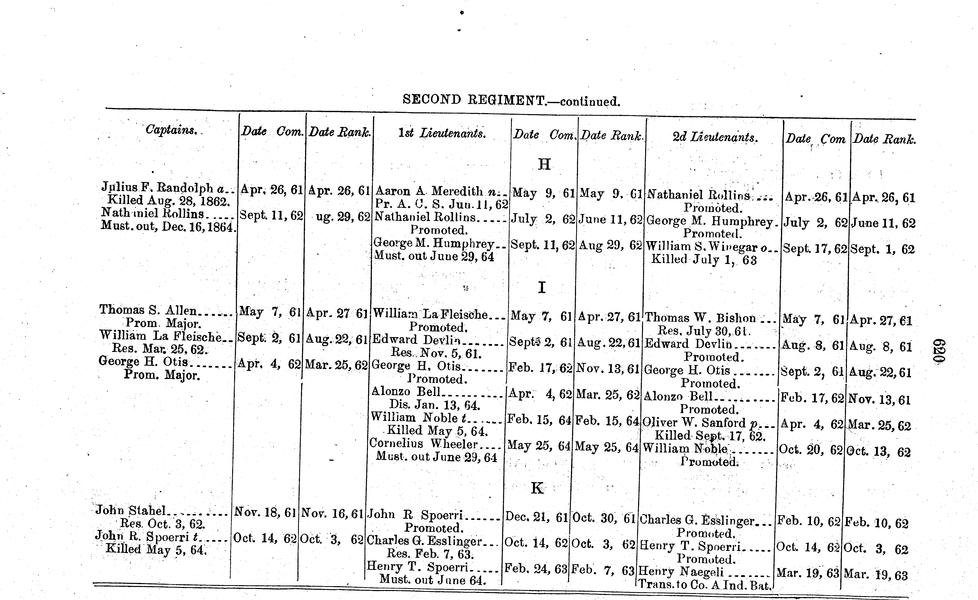 SECOND REGIMENT.—continued.
Captains. Date Com. Date Rank. 1st Lieutenants. Date Com. Date Rank. 2d Lieutenants. Date Com Date Rank.
H
Julius F. Randolph a.. Apr. 26, 61 Apr. 26, 61 Aaron A. Meredith n.. May 9, 61 May 9, 61 Nathaniel Rollins.... Apr. 26, 61 Apr. 26, 61
Killed Aug. 28, 1862. Pr. A. C. S. Jun. 11, 62 Promoted.
Nathaniel Rollins..... Sept. 11, 62 ug. 29, 62 Nathaniel Rollins..... July 2, 62 June 11, 62 George M. Humphrey. July 2, 62 June 11, 62
Must. out, Dec. 16, 1864. Promoted. Promoted.
George M. Humphrey.. Sept. 11, 62 Aug 29, 62 William S. Winegar o.. Sept. 17, 62 Sept. 1, 62
Must. out June 29, 64 Killed July 1, 63
I
Thomas S. Allen...... May 7, 61 Apr. 27 61 William La Fleische... May 7, 61 Apr. 27, 61 Thomas W. Bishon ... May 7, 61 Apr. 27, 61
Prom. Major. Promoted. Res. July 30, 61.
William La Fleische.. Sept. 2, 61 Aug. 22, 61 Edward Devlin........ Sept. 2, 61 Aug. 22, 61 Edward Devlin ....... Aug. 8, 61 Aug. 8, 61
Res. Mar. 25, 62. Res. Nov. 5, 61. Promoted.
George H. Otis....... Apr. 4, 62 Mar. 25, 62 George H. Otis....... Feb. 17, 62 Nov. 13, 61 George H. Otis ...... Sept. 2, 61 Aug. 22, 61
Prom. Major. Promoted. Promoted.
Alonzo Bell.......... Apr. 4, 62 Mar. 25, 62 Alonzo Bell.......... Feb. 17, 62 Nov. 13, 61
Dis. Jan. 13, 64. Promoted.
William Noble t...... Feb. 15, 64 Feb. 15, 64 Oliver W. Sanford p... Apr. 4, 62 Mar. 25, 62
Killed May 5, 64. Killed Sept. 17, 62.
Cornelius Wheeler.... May 25, 64 May 25, 64 William Noble ....... Oct. 20, 62 Oct. 13, 62
Must. out June 29, 64 Promoted.
K
John Stahel.......... Nov. 18, 61 Nov. 16, 61 John R Spoerri...... Dec. 21, 61 Oct. 30, 61 Charles G. Esslinger... Feb. 10, 62 Feb. 10, 62
Res. Oct. 3, 62. Promoted. Promoted.
John R. Spoerri t..... Oct. 14, 62 Oct. 3, 62 Charles G. Esslinger... Oct. 14, 62 Oct. 3, 62 Henry T. Spoerri..... Oct. 14, 62 Oct. 3, 62
Killed May 5, 64. Res. Feb. 7, 63. Promoted.
Henry T. Spoerri..... Feb. 24, 63 Feb. 7, 63 Henry Naegeli ....... Mar. 19, 63 Mar. 19, 63
Must. out June 64. Trans. to Co. A Ind. Bat.
620